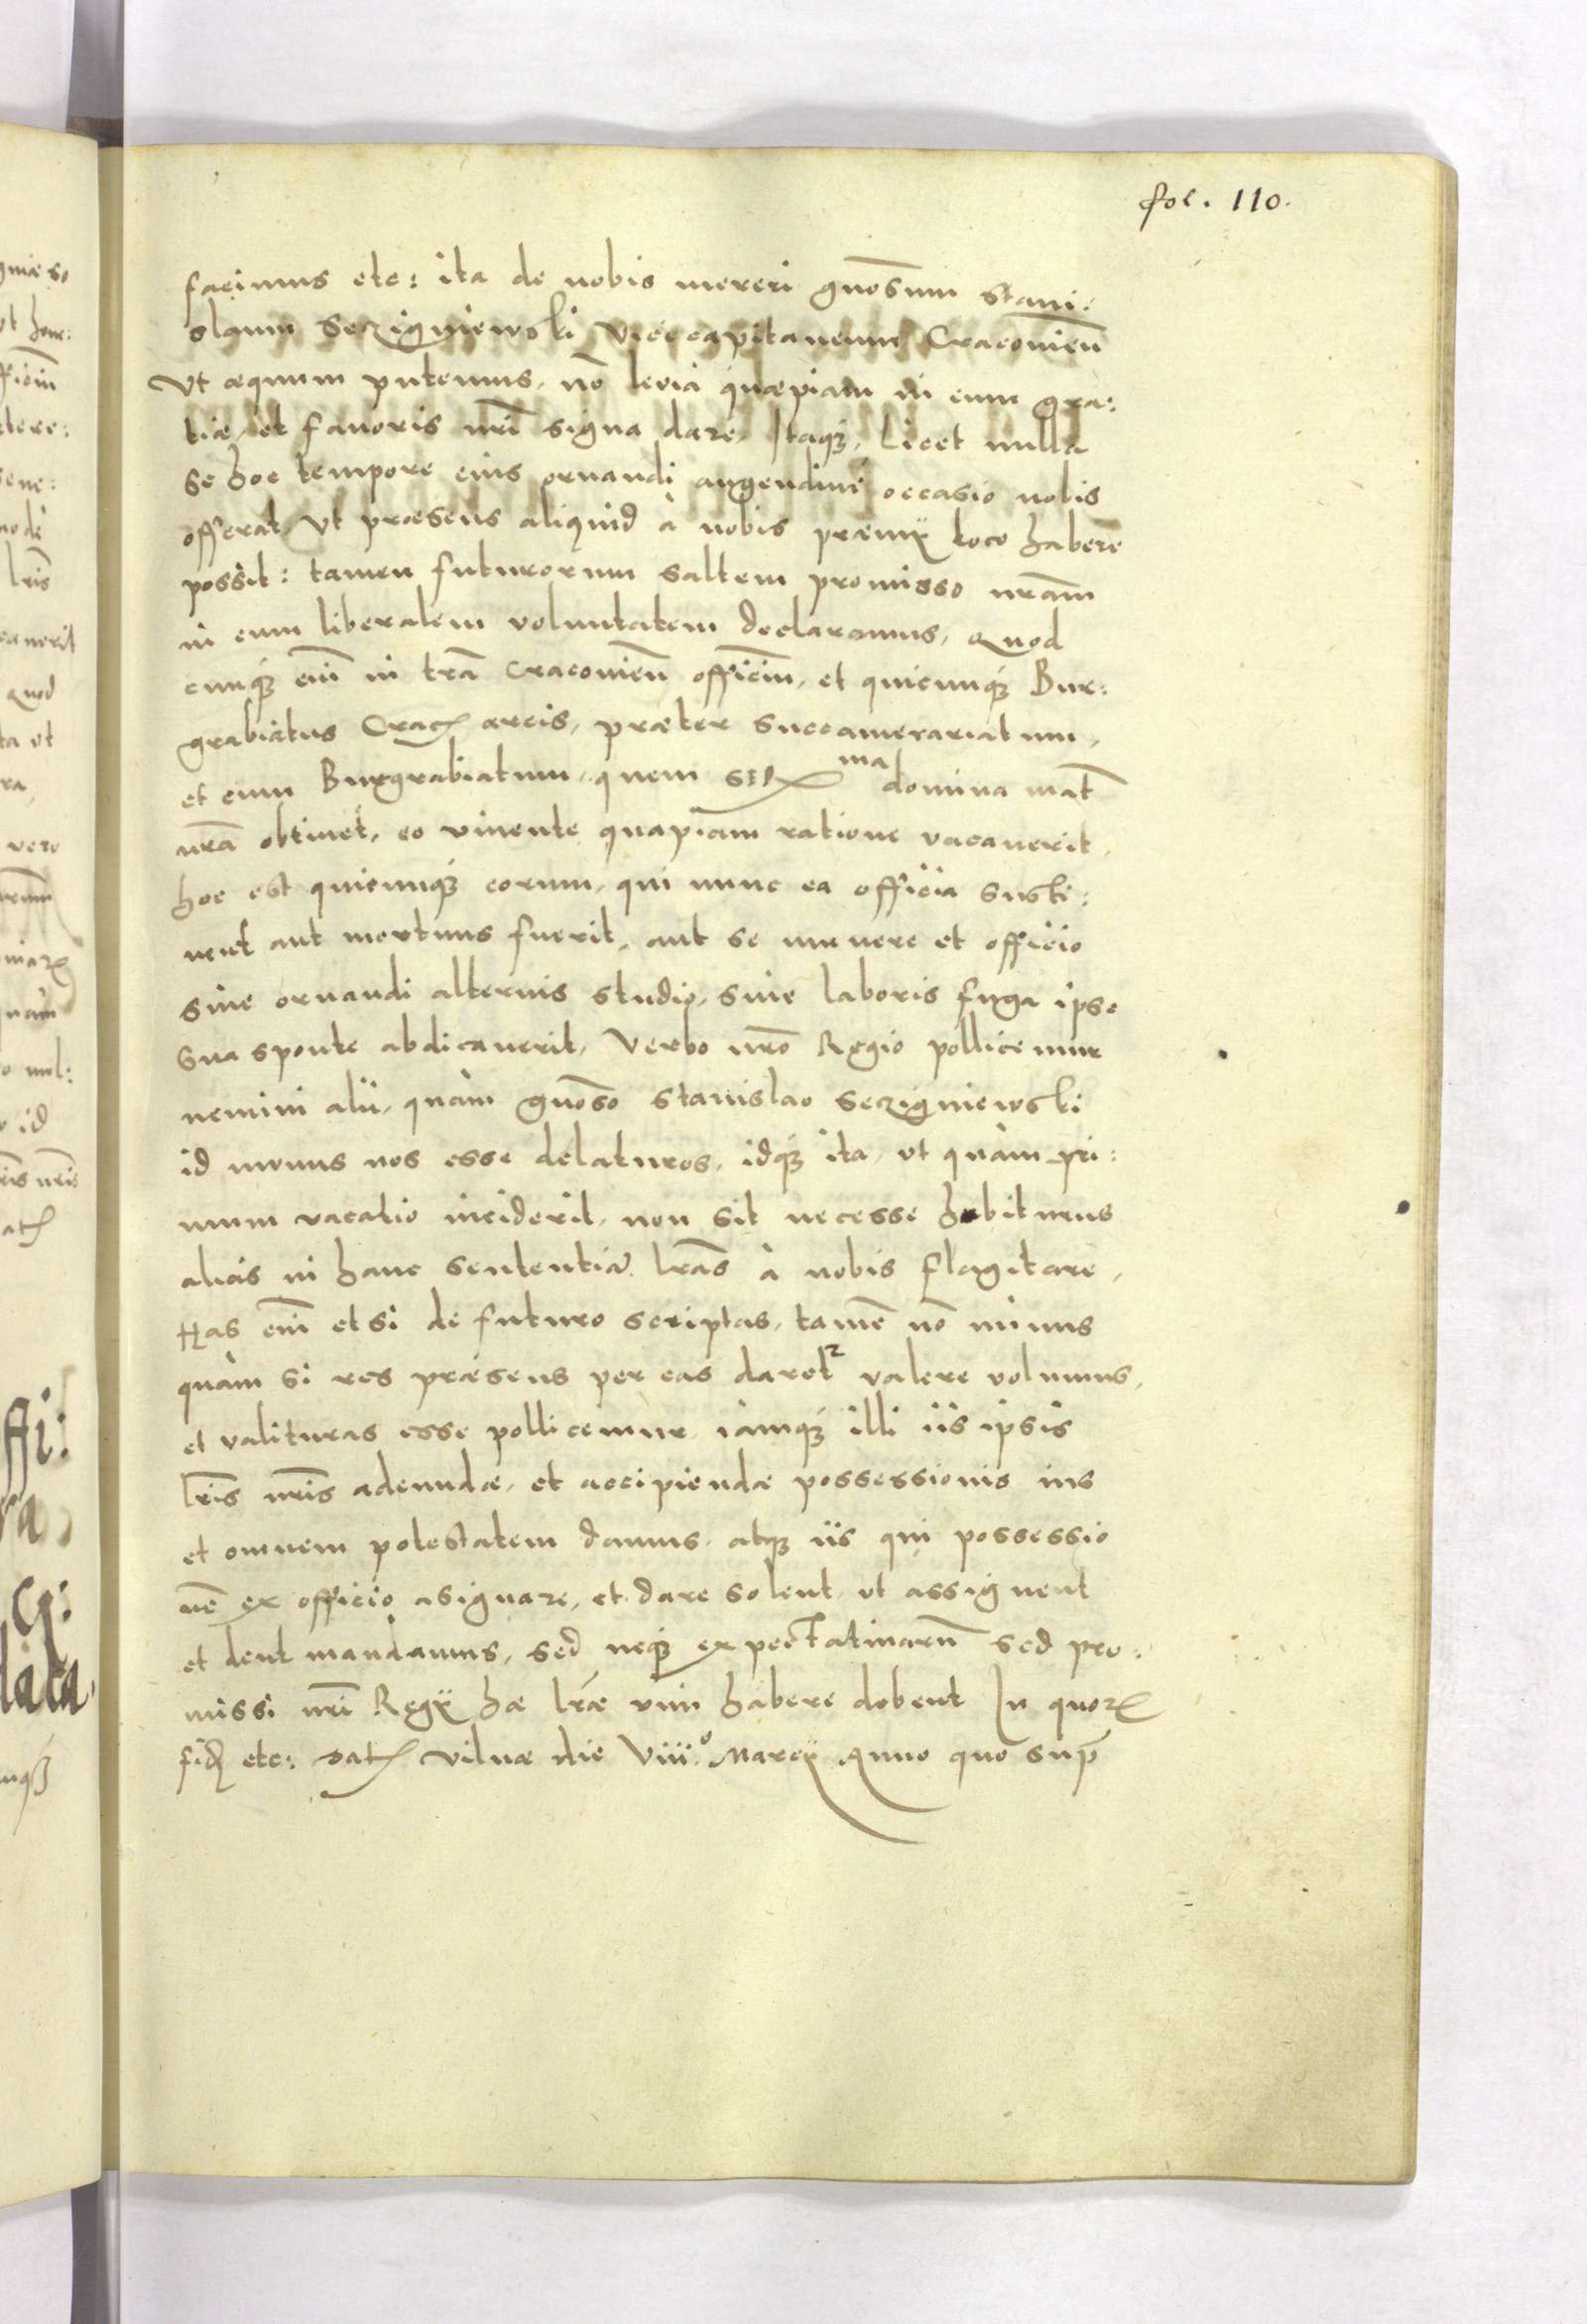 fol. 110.
facimus etc: ita de nobis mereri gnõsum stani:
slaum Sczigniewski vicecapitaneum Cracovieñ
Vt æquum putemus, nõ levia quæpiam in eum gra:
tiæ, et favoris nrĩ signa dare, Itaq3, licet nulla
se hoc tempore eius ornandi augendiui occasio nobis
offerat, Vt præsens aliquid à nobis præmÿ loco habere
possit: tamen futurorum saltem promisso nrãm
in eum liberalem voluntatem declaramus, Quod
cunq3 em̃ in trã Cracovieñ officiũm, et quicunq3 Bur:
grabiatus Crac̃ arcis, præter Succamerariatum,
et eum Burgrabiatum, quem Sermã domina mat̃
nrã obtinet, eo vivente quapiam ratione vacaverit,
hoc est quicunq3 eorum, qui nunc ea officia susti:
nent aut mortuus fuerit, aut se munere et officio
sive ornandi alterius studio, sive laboris fuga ipse
sua sponte abdicaverit, Verbo nrõ Regio pollicemur
nemini alii, quàm gnõso Stanislao Sczigniewski
id munus nos esse delaturos, idq3 ita, vt quàm pri:
mum vacatio inciderit, non sit necesse habiturus
alias in hanc sententiã lrãs à nobis flagitare,
Has em̃ etsi de futuro scriptas, tamẽ nõ minus
quàm si res præsens per eas daret2 valere volumus,
et valituras esse pollicemur, iamq3 illi iis ipsis
lrĩs nrĩs adeundæ, et accipiendæ possessionis ius
et omnem potestatem damus, atq3 iis qui possessio
nẽ ex officio asignare, et dare solent, vt assignent
et dent mandamus, sed neq3 expectativarũ sed pro:
missi nrĩ Regÿ hæ lrẽ vim habere debent In quorz
fid̃ etc: Dat̃ Vilnæ die Viii.º Marcÿ Anno quo sup̃